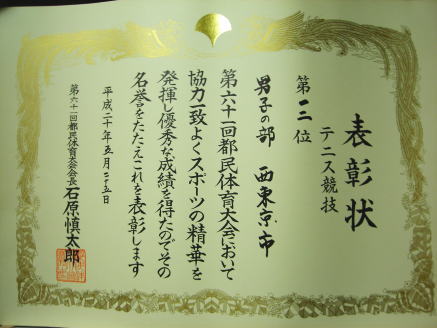 表彰状
テニス競技
第三位
男子の部 西東京市
第六十一回都民体育大会において
協力一致よくスポーツの精華を
発揮し優秀な成績を得たのでその
名誉をたたえこれを表彰します
平成二十年五月二十五日
第六十一回都民体育大会会長 石原慎太郎